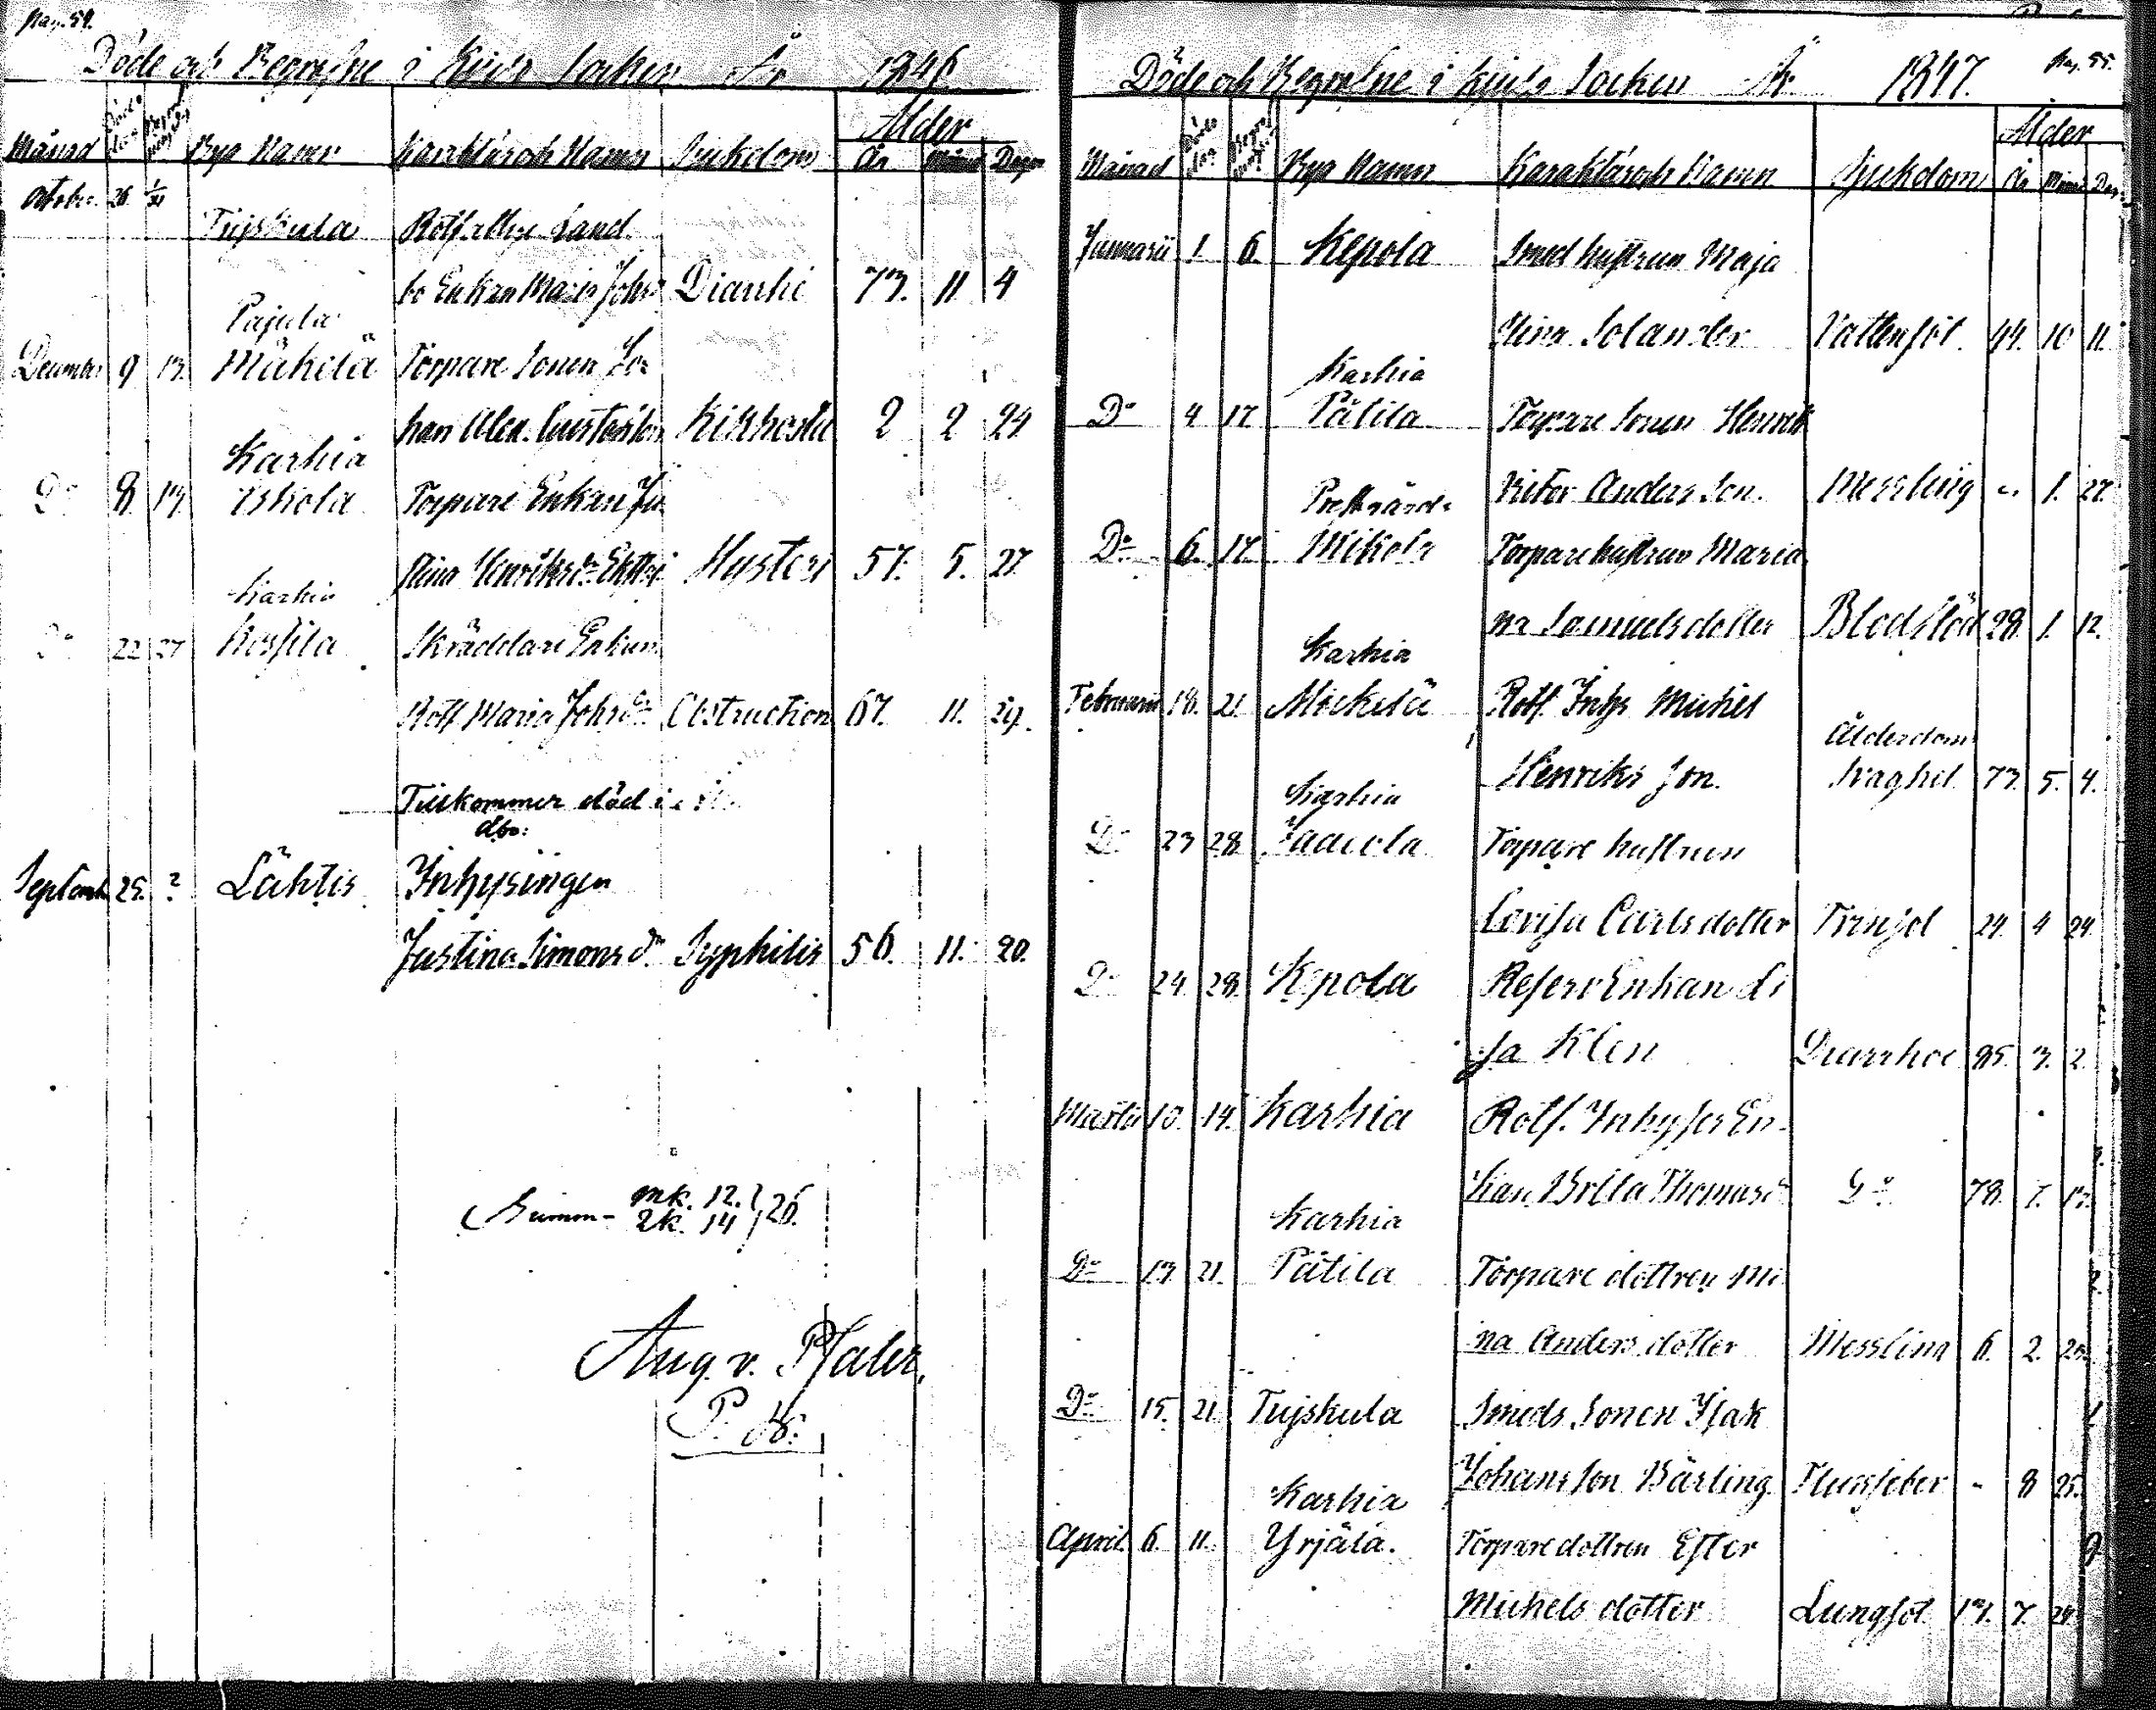 Pag. 54.
Döde och Begrafne i Kjulo Socken År 1846
Månad Döde dag Begrafn. dag Bya Namn Karaktär och Namn Sjukdom Ålder
År Månad Dagar
October 26 1/11 Tujskula Rotfattige Land
bo Enkan Maria Johsd Diarrhé 73. 11 4
Pajula
December 9 13. Mäkelä Torpare Sonen Jo
han Alex. Gustafsson Kikhosta 2 2 24
Karhia
Do 8 13. Eskola Torpare Enkan Ju
stina Henriksdr Hysteri 57. 5. 27.
Karhia
Do 22 27 Kossila Skräddare Enkan
Rotf Maria Johsdr Obstruction 67. 11. 29.
Tillkommer död
dbo:
Septemb. 25. ? Lähtis Inhysingen
Justina Simonsdr Syphilis 56. 11. 20.
Summ- mk. 12. } 26.
2k. 14
Aug. v. Pfaler,
P. H.
Pag. 55.
Döde och Begrafne i Kjulo Socken År 1847.
Månad Döde dag Begrafn. dag Bya Namn Karaktär och Namn Sjukdom Ålder
År Mån Dag.
Januarii 1. 6. Kepola Smed hustrun Maja
Stina Solander Vattensot. 44. 10 11.
Karhia
Do 4 17 Pätila Torpare Sonen Henrik
Victor Andersson. Messling " 1. 27.
Prestgårds
Do 6. 17. Mikola Torpare hustrun Maria
na Samuelsdotter Blodstört 28. 1. 12.
Karhia
Februarii 18. 21. Mäkelä Rotf. Inhys Michel
Henriks Son. Ålderdoms
Svaghet 73. 5. 4.
Karhia
Do 23 28. Jaacola Torpare hustrun
Lovisa Carlsdotter Trånsot 24. 4 24.
Do 24. 28. Kepola Reserv Enkan Li
sa Klen Diarrhoe 85. 3. 2.
Martii 10. 14. Karhia Rotf. Inhyses En-
kan Britta Thomasdr Do 78. 7. 13.
Karhia
Do 13. 21. Pätila Torpare dottren Mi
na Anders dotter Messling 6. 2. 25.
Do 15. 21. Tujskula Smeds Sonen Isak
Johansson Bärling. Flussfeber - 8 25.
Karhia
April. 6. 11. Yrjälä. Torpare dottren Ester
Michels dotter Lungsot 17. 7. 24.